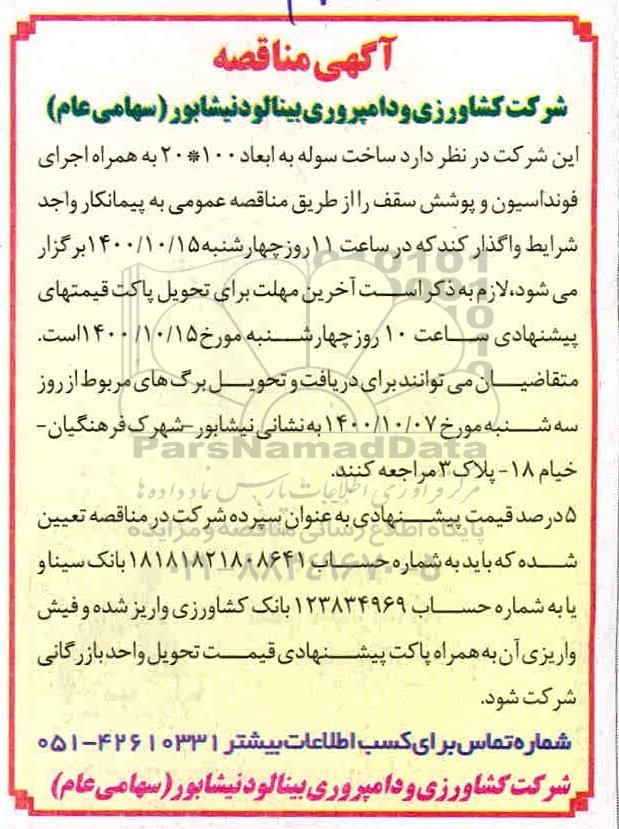 آگهی مناقصه
شرکت کشاورزی و دامپروری بینالود نیشابور (سهامی عام)
این شرکت در نظر دارد ساخت سوله به ابعاد ۱۰۰*۲۰ به همراه اجرای
فونداسیون و پوشش سقف را از طریق مناقصه عمومی به پیمانکار واجد
شرایط واگذار کند که در ساعت ۱۱ روز چهارشنبه ۱۴۰۰/۱۰/۱۵ برگزار
می شود، لازم به ذکر است آخرین مهلت برای تحویل پاکت قیمتهای
پیشنهادی ساعت ۱۰ روز چهارشنبه مورخ ۱۴۰۰/۱۰/۱۵ است.
متقاضیان می توانند برای دریافت و تحویل برگ های مربوط از روز
سه شنبه مورخ ۱۴۰۰/۱۰/۰۷ به نشانی نیشابور - شهرک فرهنگیان -
ParsNamadData
خیام ۱۸ - پلاک ۳ مراجعه کنند.
مرکز فرآوری اطلاعات پارس نماد داده ها
۵ درصد قیمت پیشنهادی به عنوان سپرده شرکت در مناقصه تعیین
پایگاه اطلاع رسانی مناقصه و مزایده
شده که باید به شماره حساب ۱۸۱۸۱۸۲۱۸۰۸۶۴۱ بانک سینا و
۰۲۱-۸۸۳۴۹۶۷۰-۵
یا به شماره حساب ۱۲۳۸۳۴۹۶۹ بانک کشاورزی واریز شده و فیش
واریزی آن به همراه پاکت پیشنهادی قیمت تحویل واحد بازرگانی
شرکت شود.
شماره تماس برای کسب اطلاعات بیشتر ۴۲۶۱۰۳۳۱-۰۵۱
شرکت کشاورزی و دامپروری بینالود نیشابور (سهامی عام)